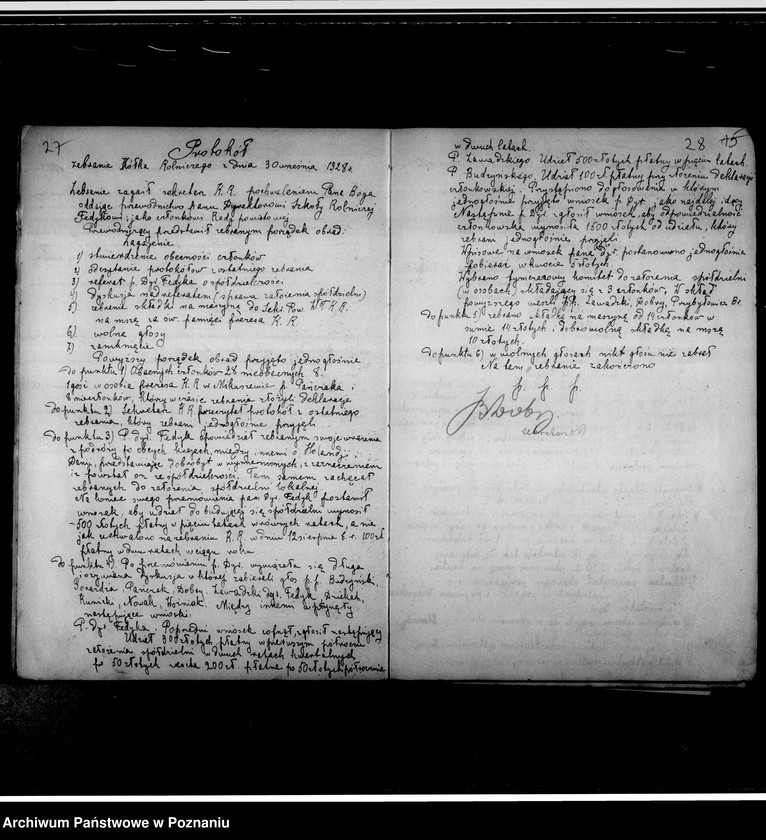 27
Protokół
zebranie Kółka Rolniczego z dnia 30 września 1928 r
Zebranie zagaił sekretarz K.R. pochwaleniem Pana Boga
oddając przewodnictwo panu Dyrektorowi Szkoły Rolniczej
Fedykowi jako członkowi Rady powiatowej
Przewodniczący przedstawił zebranym porządek obrad:
Zagajenie
1) stwierdzenie obecności członków
2) odczytanie protokółów z ostatniego zebrania
3) referat p. Dyr. Fedyka o spółdzielczości
4) dyskusja nad referatem (sprawa założenia spółdzielni)
5) zebranie składki na maszynę do Sekr. Pow. K.R.
na mszą za św. pamięci prezesa K.R
6) wolne głosy
7) zamknięcie
Powyższy porządek obrad przyjęto jednogłośnie
Do punktu 1) Obecnych członków 28 nieobecnych 8.
1 gość w osobie prezesa K.R w p. Pańczaka i
8 nieczłonków, który w czasie zebrania złożyli deklaracje
Do punktu 2) Sekretarz K.R. przeczytał protokół z ostatniego
zebrania, który zebrani jednogłośnie przyjęli
Do punktu 3) P. dyr. Fedyk opowiedział zebranym swoje wrażenia
z podróży po obcych krajach, między innemi o Holandji i
Danji, przedstawiając dobrobyt w wymienionych, z zaznaczeniem
iż powstał on ze spółdzielczości. Tem samem zachęcał
zebranych do założenia spółdzielni lokalnej
Na koniec swego przemówienia pan dyr. Fedyk postawił
wniosek, aby udział do budującej się spółdzielni wynosił
500 złotych płatny w pięciu latach w równych ratach, a nie
jak uchwalono na zebraniu K.R. w dniu 12 sierpnia b.r. 100 zł
płatny w dwu ratach w ciągu roku
Do punktu 4) Po przemówieniu p. Dyr. wywiązała się długa
i ożywiona dyskusja w której zabierali głos p.p. Budzyński,
Pańczak, Dobry, Zawadzki dyr. Fedyk
Kunicki, Nowak, Woźniak. Między innemi wpłynęły
następujące wnioski:
P. dyr. Fedyka. Poprzedni wniosek cofnął, zgłosił następujący
Udział 300 złotych płatny w pierwszym półroczu
założenia spółdzielni w dwuch ratach kwartalnych
po 50 złotych reszta 200 zł. płatne po 50 złotych półrocznie
28 15
w dwuch latach.
P. Zawadzkiego Udział 500 złotych płatny w pięciu latach.
P. Budzyńskiego. Udział 100 zł płatny przy złożeniu deklaracji
członkowskiej. Przystąpiono do głosowania w którym
jednogłośnie przyjęto wniosek p. Dyr. jako najdalej idący
Następnie p. Dyr. zgłosił wniosek, aby odpowiedzialność
członkowska wynosiła 1500 złotych od udziału, który
zebrani jednogłośnie przyjęli
Wpisowe na wniosek pana dyr. postanowiono jednogłośnie
pobierać w kwocie złotych.
Wybrano tymczasowy komitet do założenia spółdzielni
(w osobach) składający się z 3 członków, W skład
powyższego weszli p.p. Zawadzki, Dobry, Przybyłowicz
Do punktu 5) zebrano składkę na maszynę od 14 członków w
sumie 14 złotych i dobrowolną składkę na mszą
10 złotych.
Do punktu 6) w wolnych głosach nikt głosu nie zabrał
Na tem zebranie zakończono
p. p. p.
Dobry
sekretarz K.R
Archiwum Państwowe w Poznaniu